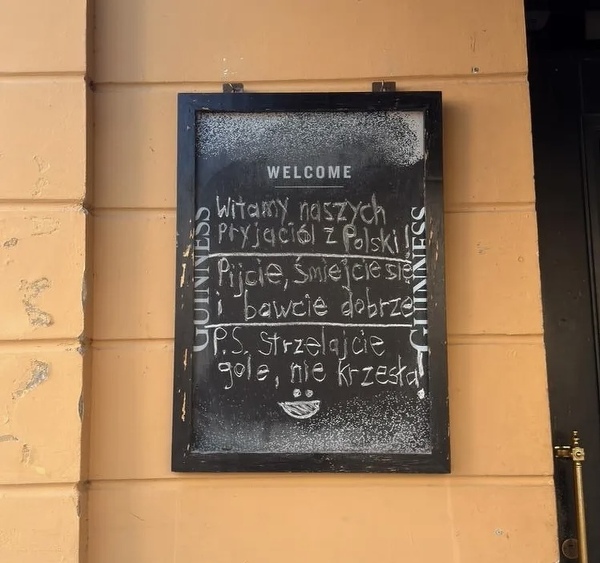 WELCOME
GUINNESS
GUINNESS
Witamy naszych
przyjaciół z Polski!
Pijcie, śmiejcie się
i bawcie dobrze
P.S. Strzelajcie
gole, nie krzesła!